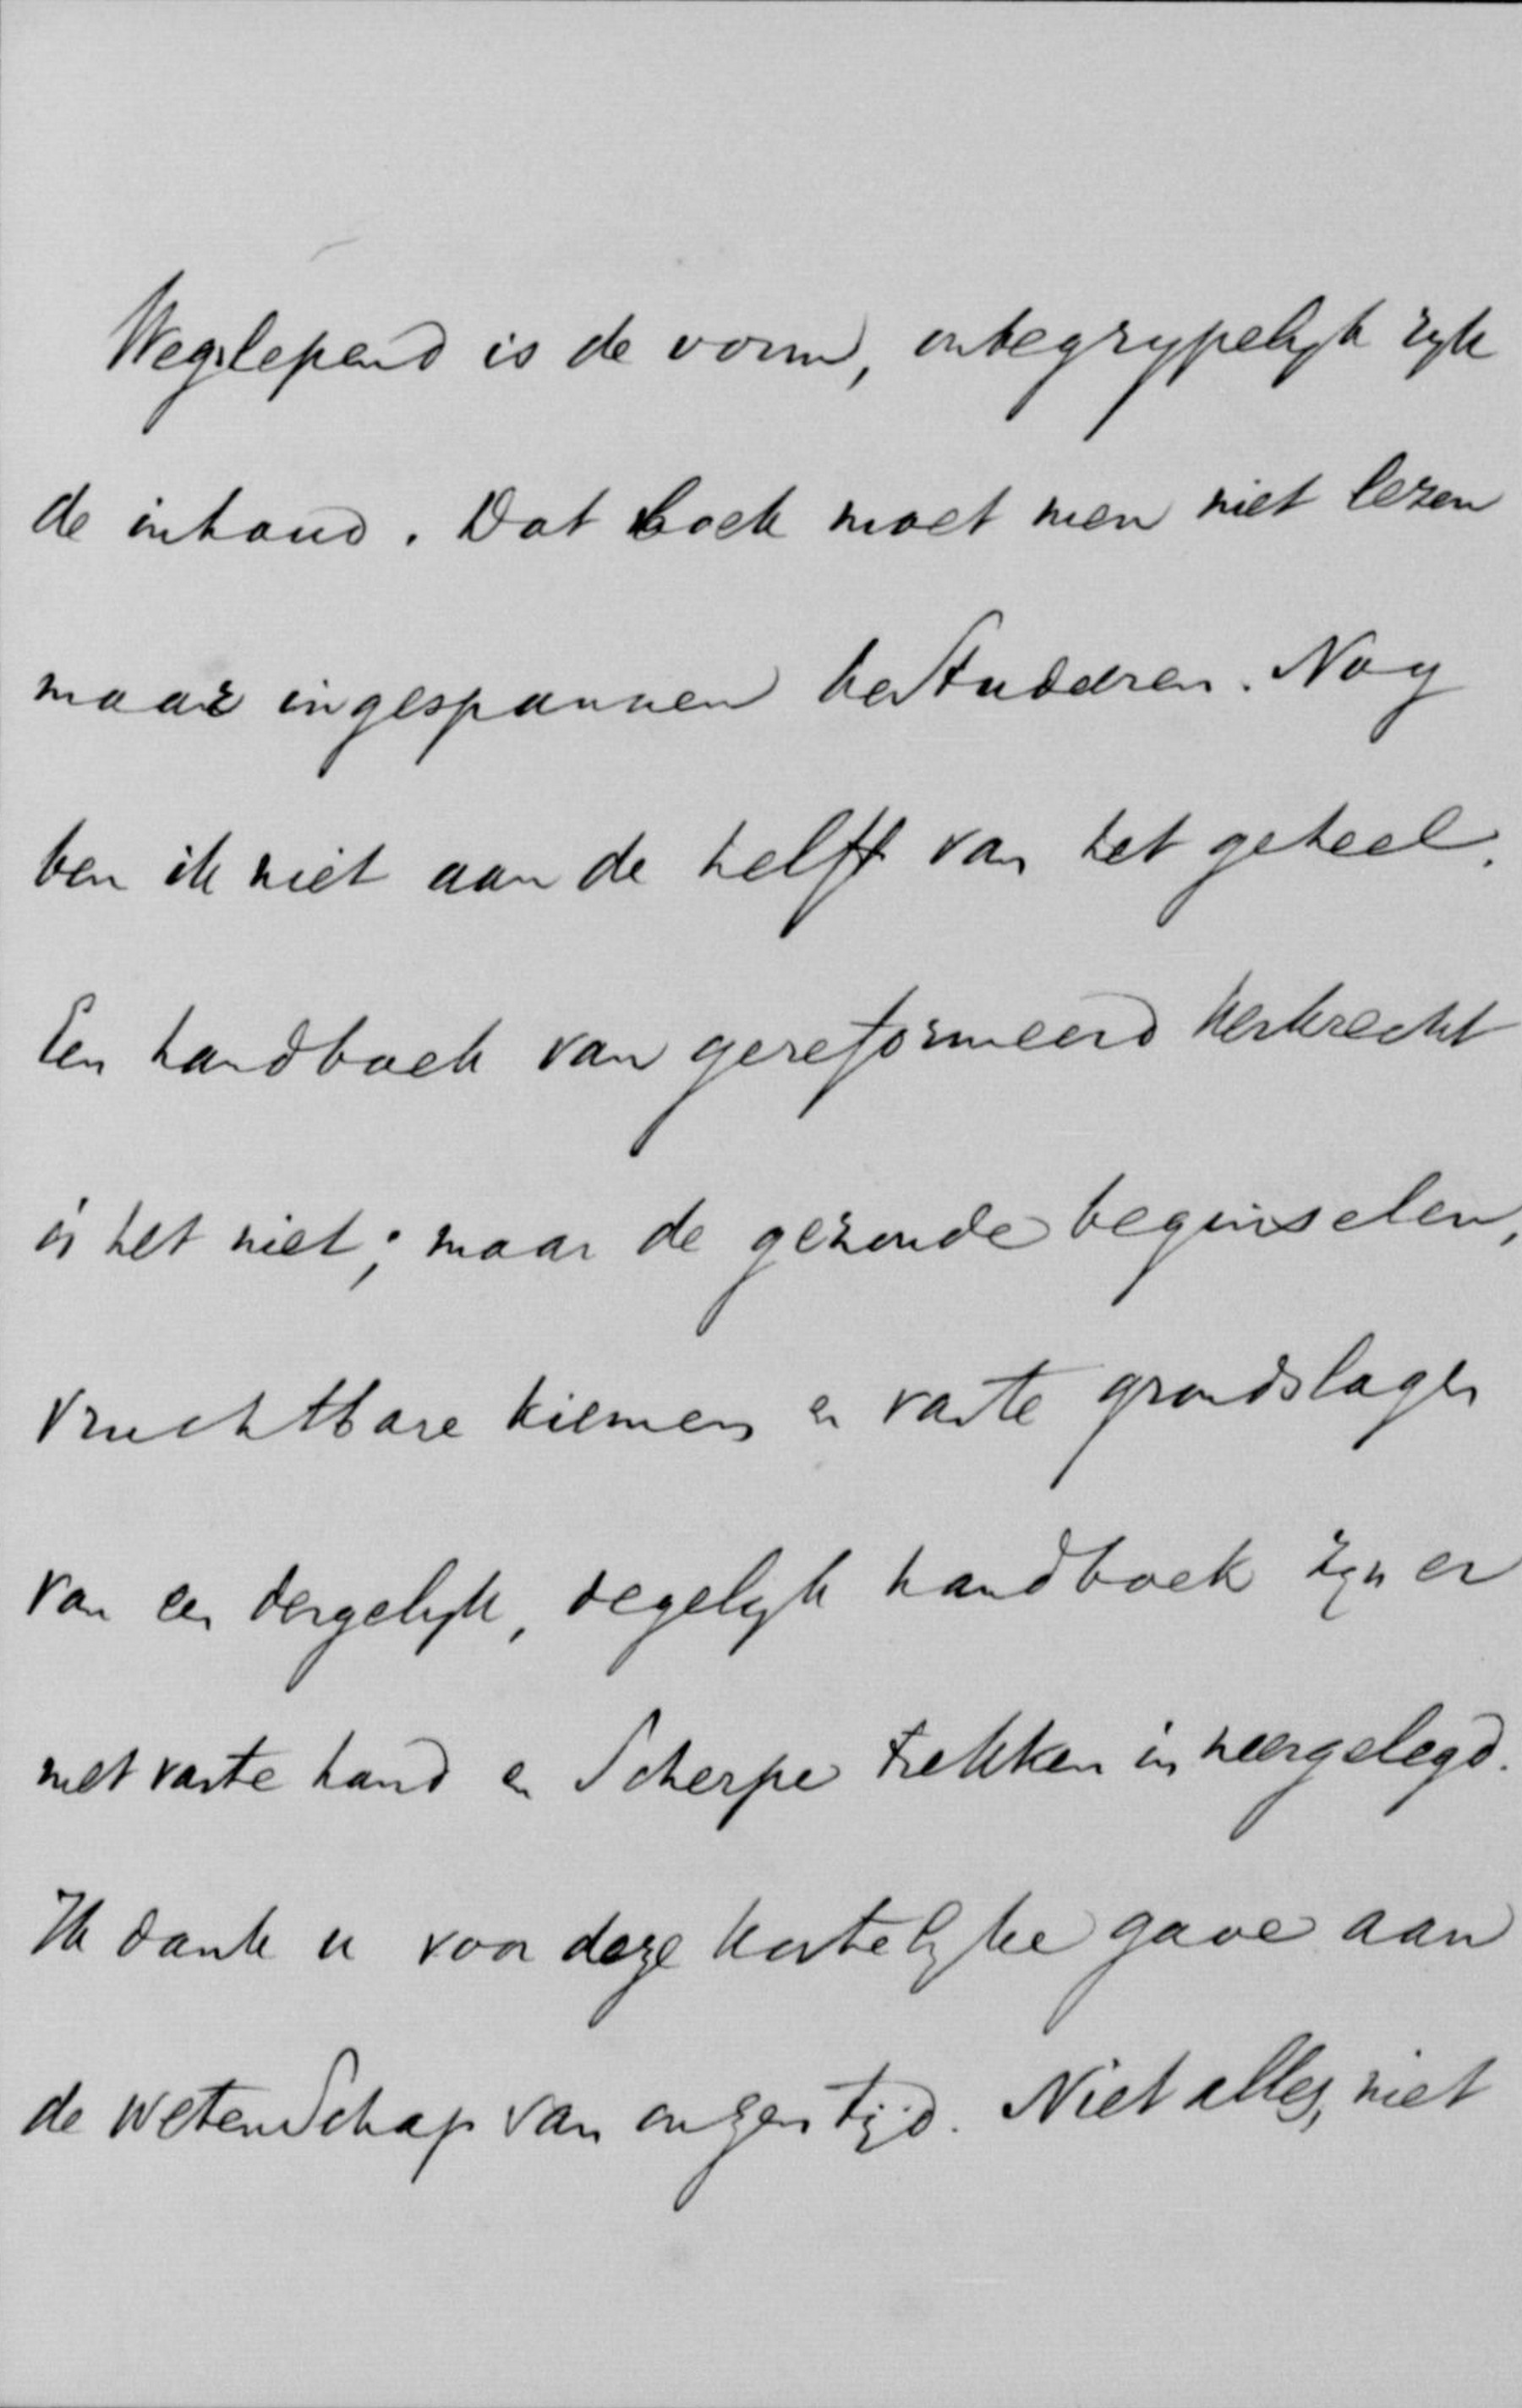 Wegslepend is de vorm, onbegrypelyk ryk
de inhoud. Dat boek moet men niet lezen
maar ingespannen bestuderen. Nog
ben ik niet aan de helft van het geheel.
Een handboek van gereformeerd kerkrecht
is het niet; maar de gezonde beginselen,
vruchtbare kiemen en vaste grondslagen
van een dergelyk, degelyk handboek zyn er
met vaste hand en scherpe trekken in neergelegd.
Ik dank u voor deze kostelyke gave aan
de wetenschap van onzen tijd. Niet alles, niet